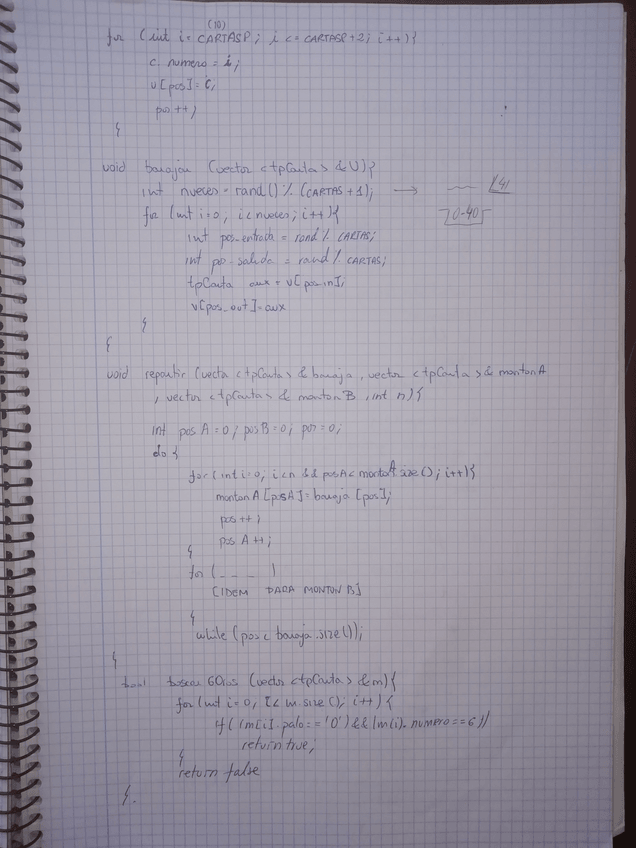 (10)
for (int i = CARTASP; i <= CARTASP+2; i++){
c. numero = i;
v[pos] = c;
pos ++;
}
void barajar (vector <tpCarta> & v){
int nveces = rand() % (CARTAS + 1); →
for (int i=0, i<nveces; i++){
0-40
int pos-entrada = rand % CARTAS;
int pos-salida = rand % CARTAS;
tpCarta aux = v[pos_in];
v[pos_out] = aux
}
}
void repartir (vector <tpCarta> & baraja, vector <tpCarta> & monton A
, vector <tpCarta> & monton B, int n){
int pos A = 0; pos B = 0; pos = 0;
do {
for (int i=0; i<n && posA< montonA size(); i++){
monton A [posA] = baraja [pos];
pos ++;
pos A ++;
}
for (_ _ _ _ )
[IDEM PARA MONTON B]
}
while (pos < baraja .size());
}
bool buscar 6Oros (vector <tpCarta> & m){
for (int i=0, i< m. size(); i++){
if ( (m[i]. palo == 'O') && (m(i). numero == 6))
return true;
}
return false
}.